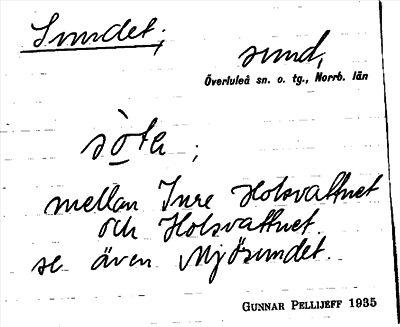 Sundet;
sund,
Överluleå sn. o. tg., Norrb. län
sö̱tɐ ;
mellan Inre Holsvattnet
och Holsvattnet.
se även Mjösundet.
GUNNAR PELLIJEFF 1935